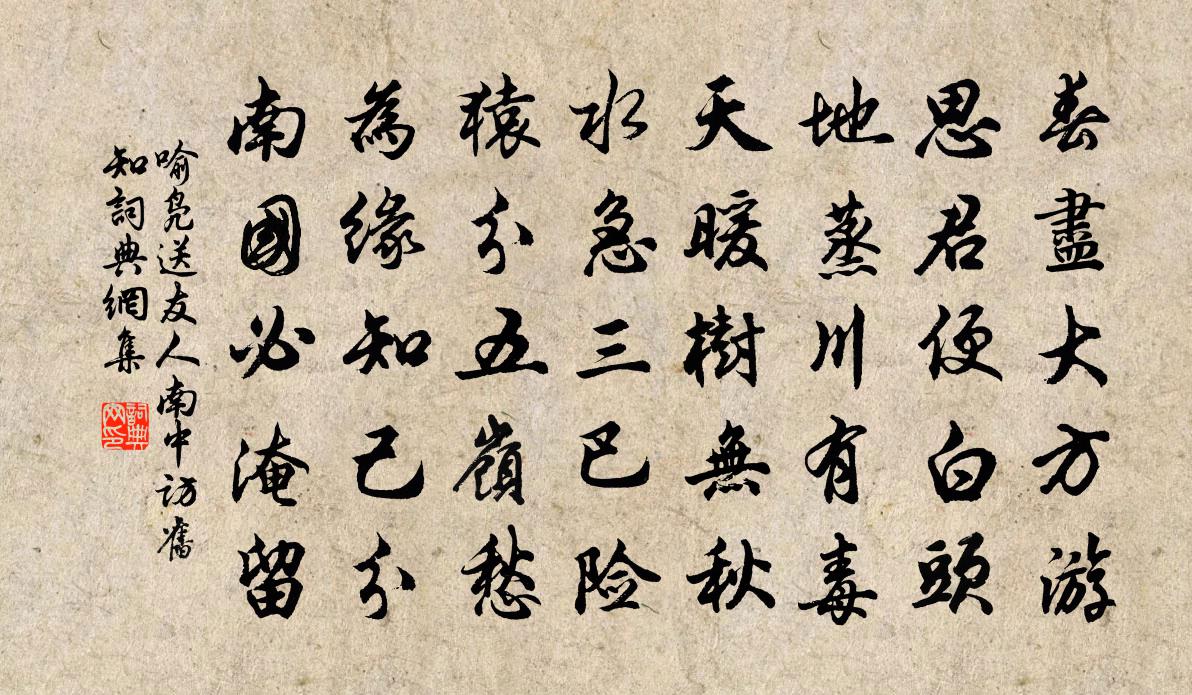 春盡大方游
思君便白頭
地蒸川有毒
天暖樹無秋
水急三巴險
猿分五嶺愁
為緣知己分
南國必淹留
喻鳧送友人南中訪舊
知詞典網集
詞典网印